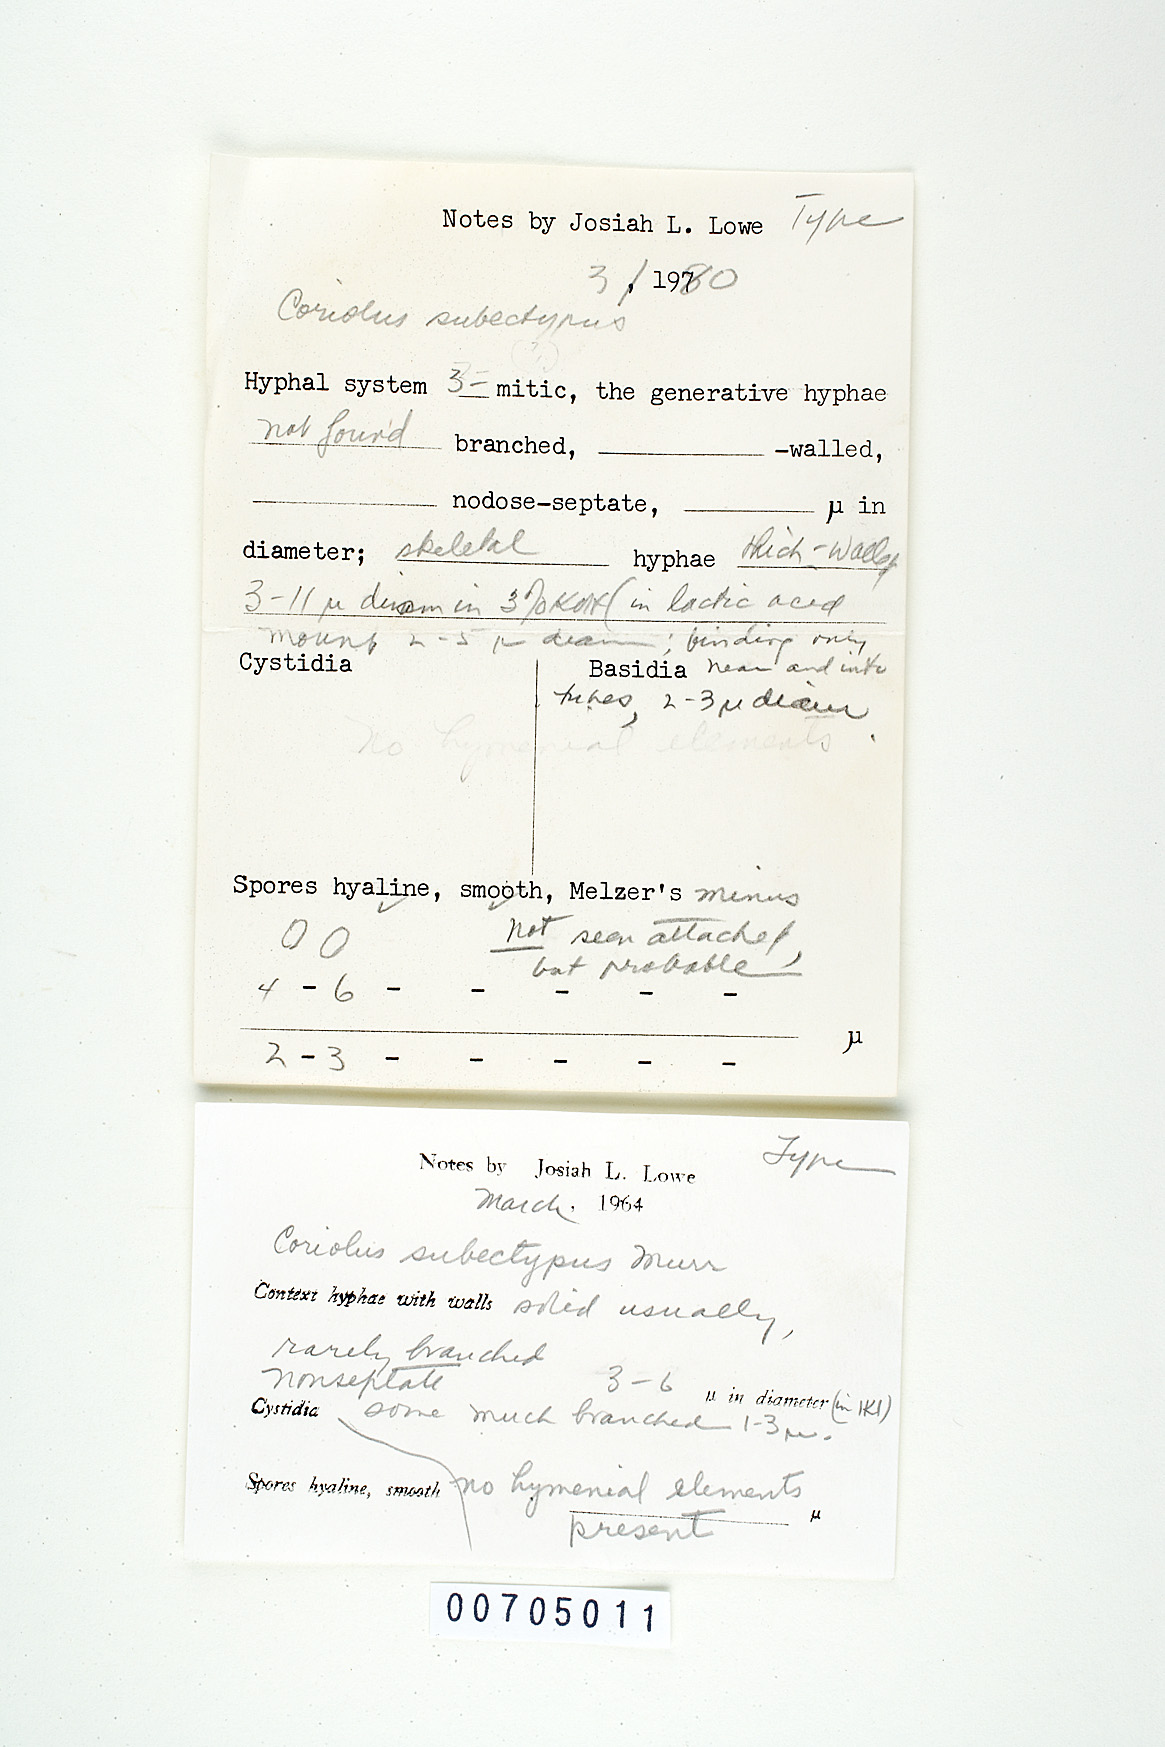 Notes by Josiah L. Lowe Type
3, 1980
Coriolus subectypus
(?)
Hyphal system 3- mitic, the generative hyphae
not found branched, ________ -walled,
________ nodose-septate, ________ μ in
diameter; skeletal hyphae thick-walled,
3-11 μ diam in 3% KOH (in lactic acid
mount 2-5 μ diam; binding only
Cystidia Basidia near and into
tubes, 2-3 μ diam.
no hymenial elements
Spores hyaline, smooth, Melzer's minus
not seen attached,
but probable
4 - 6 - - - - -
μ
2 - 3 - - - - -
Notes by Josiah L. Lowe Type
March, 1964
Coriolus subectypus Murr
Context hyphae with walls solid usually,
rarely branched
nonseptate 3-6 μ in diameter (in IKI)
Cystidia some much branched 1-3 μ.
Spores hyaline, smooth no hymenial elements
present μ
00705011